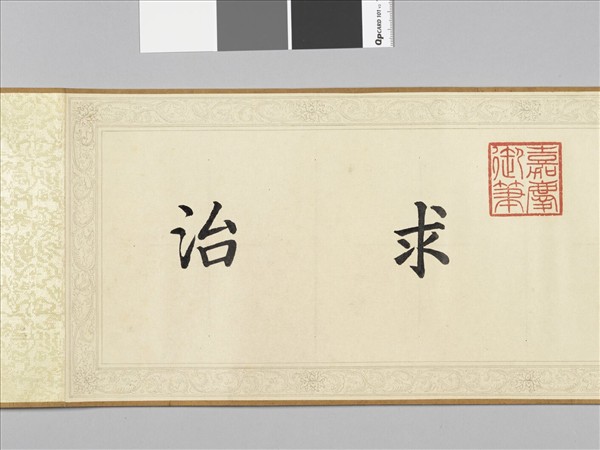 QPCARD 101
嘉慶
御筆
求治